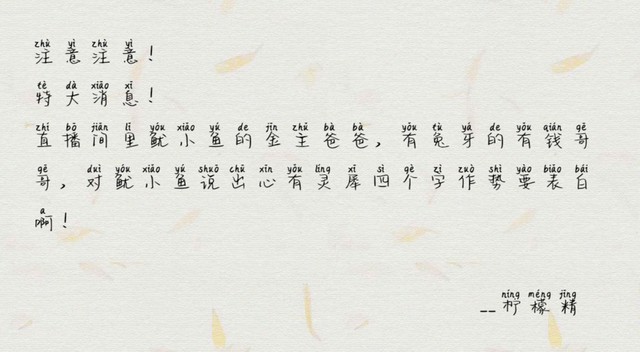 zhù yì zhù yì
注意注意！
tè dà xiāo xi
特大消息！
zhí bō jiān lǐ yóu xiǎo yú de jīn zhǔ bà ba, yǒu tù yá de yǒu qián gē
直播间里鱿小鱼的金主爸爸，有兔牙的有钱哥
gē duì yóu xiǎo yú shuō chū xīn yǒu líng xī sì gè zì zuò shì yào biǎo bái
哥，对鱿小鱼说出心有灵犀四个字作势要表白
a
啊！
níng méng jīng
__柠檬精